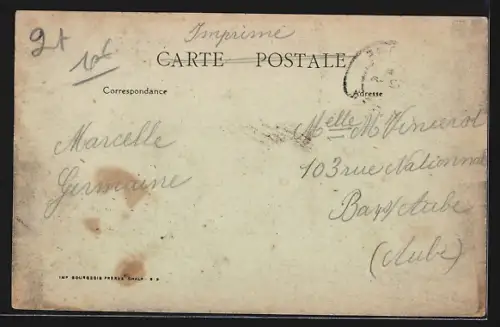 Imprimé
CARTE POSTALE
Correspondance
Adresse
Marcelle
Germaine
Melle M Vincent
103 rue Nationnal
Bar s/ Aube
(Aube)
IMP BOURGEOIS FRERES CHALP. S. S